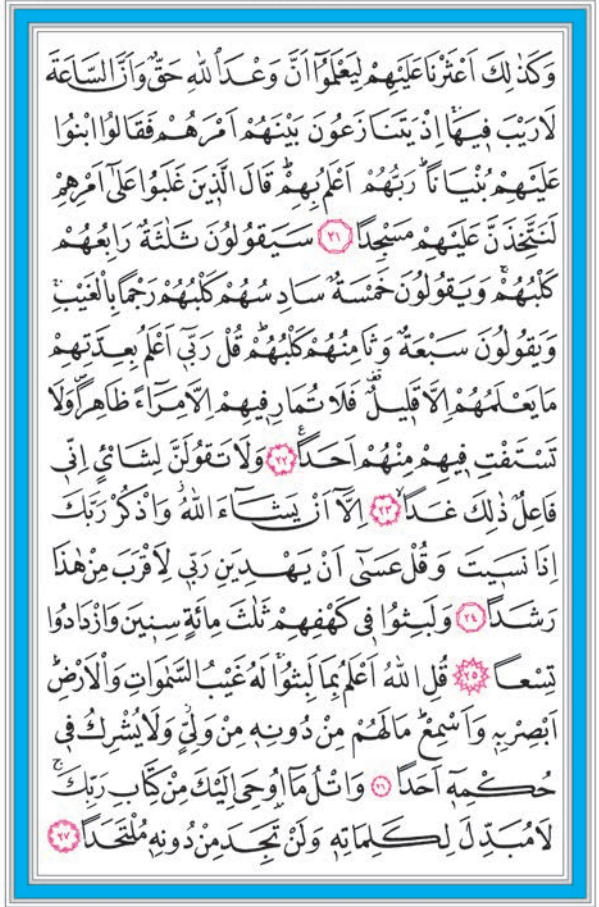 وَكَذٰلِكَ اَعْثَرْنَا عَلَيْهِمْ لِيَعْلَمُٓوا اَنَّ وَعْدَ اللّٰهِ حَقٌّ وَاَنَّ السَّاعَةَ
لَا رَيْبَ ف۪يهَاۚ اِذْ يَتَنَازَعُونَ بَيْنَهُمْ اَمْرَهُمْ فَقَالُوا ابْنُوا
عَلَيْهِمْ بُنْيَانًاۜ رَبُّهُمْ اَعْلَمُ بِهِمْۜ قَالَ الَّذ۪ينَ غَلَبُوا عَلٰٓى اَمْرِهِمْ
لَنَتَّخِذَنَّ عَلَيْهِمْ مَسْجِدًا ﴿٢١﴾ سَيَقُولُونَ ثَلٰثَةٌ رَابِعُهُمْ
كَلْبُهُمْۚ وَيَقُولُونَ خَمْسَةٌ سَادِسُهُمْ كَلْبُهُمْ رَجْمًا بِالْغَيْبِۚ
وَيَقُولُونَ سَبْعَةٌ وَثَامِنُهُمْ كَلْبُهُمْۜ قُلْ رَبّ۪ٓي اَعْلَمُ بِعِدَّتِهِمْ
مَا يَعْلَمُهُمْ اِلَّا قَل۪يلٌ۠ فَلَا تُمَارِ ف۪يهِمْ اِلَّا مِرَٓاءً ظَاهِرًاۖ وَلَا
تَسْتَفْتِ ف۪يهِمْ مِنْهُمْ اَحَدًا۟ ﴿٢٢﴾ وَلَا تَقُولَنَّ لِشَا۬يْءٍ اِنّ۪ي
فَاعِلٌ ذٰلِكَ غَدًاۙ ﴿٢٣﴾ اِلَّٓا اَنْ يَشَٓاءَ اللّٰهُۘ وَاذْكُرْ رَبَّكَ
اِذَا نَس۪يتَ وَقُلْ عَسٰٓى اَنْ يَهْدِيَنِ رَبّ۪ي لِاَقْرَبَ مِنْ هٰذَا
رَشَدًا ﴿٢٤﴾ وَلَبِثُوا ف۪ي كَهْفِهِمْ ثَلٰثَ مِائَةٍ سِن۪ينَ وَازْدَادُوا
تِسْعًا ﴿٢٥﴾ قُلِ اللّٰهُ اَعْلَمُ بِمَا لَبِثُواۚ لَهُ غَيْبُ السَّمٰوَاتِ وَالْاَرْضِۜ
اَبْصِرْ بِه۪ وَاَسْمِعْۜ مَا لَهُمْ مِنْ دُونِه۪ مِنْ وَلِيٍّۘ وَلَا يُشْرِكُ ف۪ي
حُكْمِه۪ٓ اَحَدًا ﴿٢٦﴾ وَاتْلُ مَٓا اُو۫حِيَ اِلَيْكَ مِنْ كِتَابِ رَبِّكَۚ
لَا مُبَدِّلَ لِكَلِمَاتِه۪ وَلَنْ تَجِدَ مِنْ دُونِه۪ مُلْتَحَدًا ﴿٢٧﴾